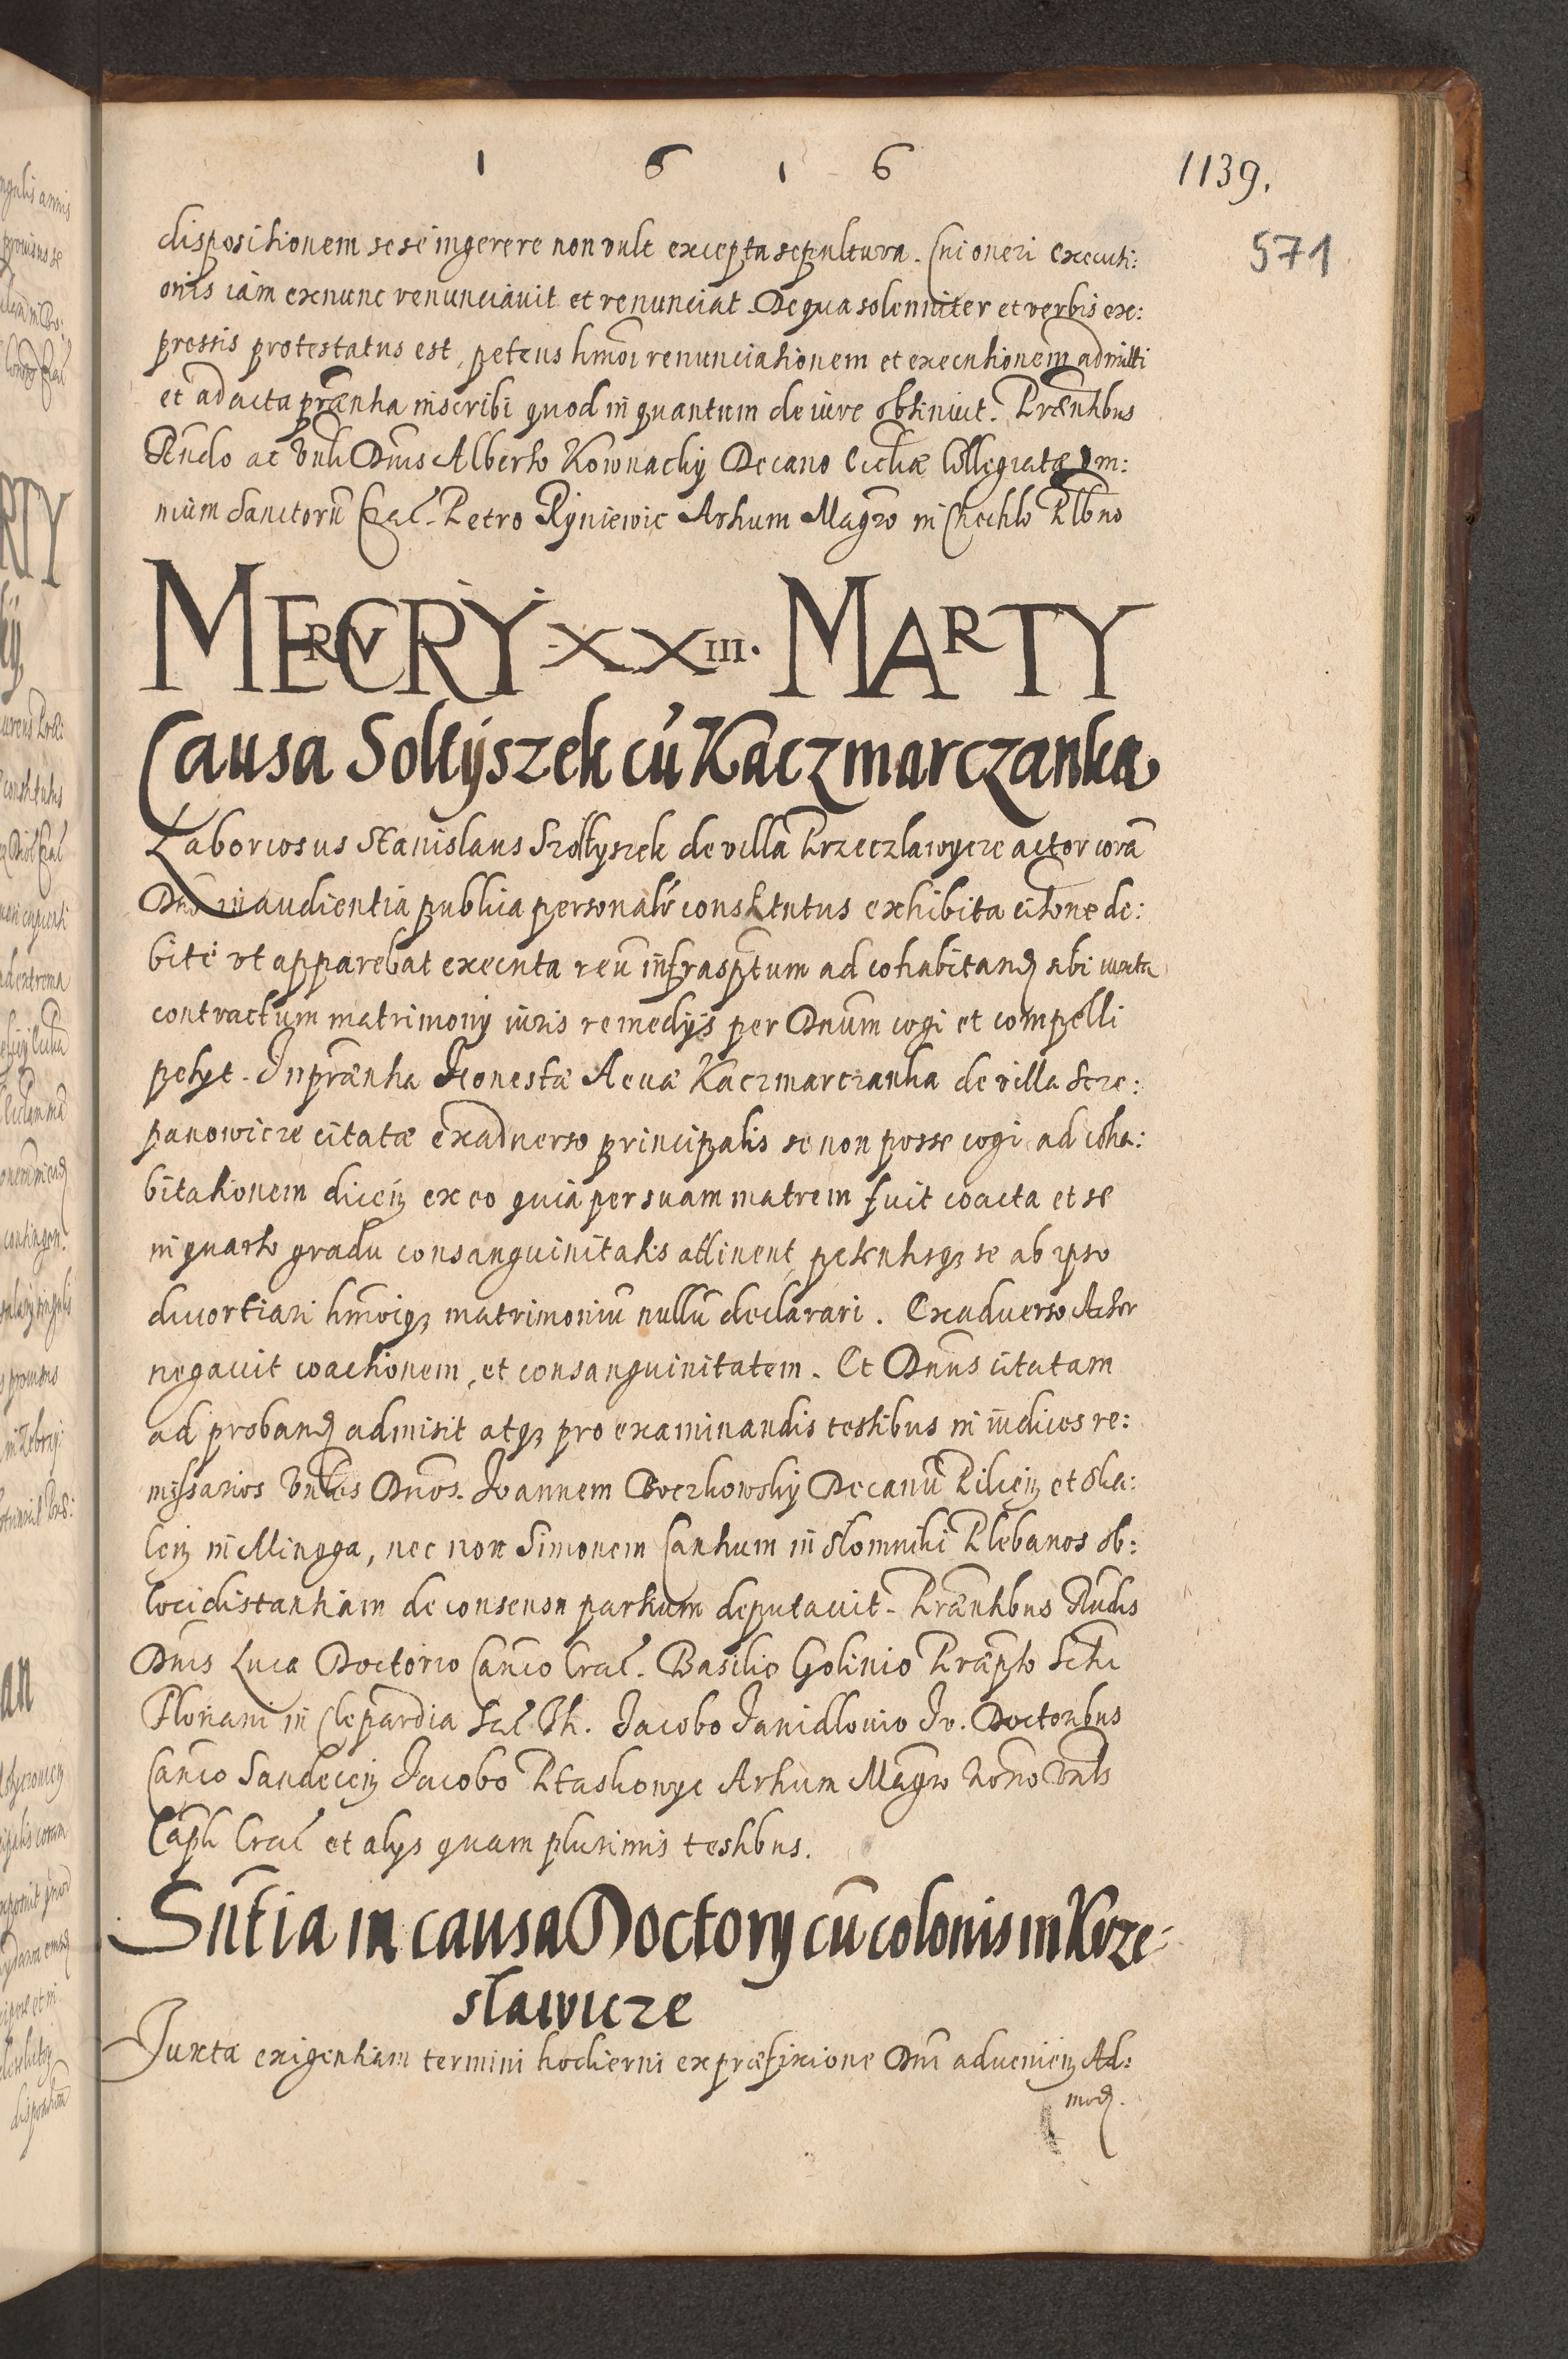 1 6 1 6
1139.
571
dispositionem sese ingerere non vult excepta sepultura. Cui oneri executi:
onis iam exnunc renunciavit et renunciat. De qua solenniter et verbis ex:
pressis protestatus est, petens hmoi renunciationem et executionem admitti
et ad acta prænta inscribi quod in quantum de iure obtinuit. Præntibus
Rndo ac Vnli Dnis Alberto Kownacky Decano Ecclæ Collegiatæ Om:
nium Sanctorũ Crac. Petro Ryniewic Artium Magro in Chechlo Plbno
MERCVRY XXIII. MARTY
Causa Soltyszek cũ Kaczmarczanka
Laboriosus Stanislaus Szoltyszek de villa Krzeczlawycze actor corã
Dno in audientia publica personalr constitutus exhibita citone de:
bite vt apparebat executa reũ infrasptum ad cohabitand sibi iuxta
contractum matrimony iuris remedys per Dnum cogi et compelli
petyt. In prænta Honestæ Aevæ Kaczmarczanka de villa Scze:
panowicze citatæ exadverso principalis se non posse cogi ad coha:
bitationem dicen ex eo quia per suam matrem fuit coacta et se
in quarto gradu consanguinitatis attinent, petentisq se ab ipso
divortiari hmoiq matrimoniũ nullũ declarari. Exadverso Actor
negavit coactionem, et consanguinitatem. Et Dnus citatam
ad proband admisit atq pro examinandis testibus in iudices re:
missarios Vnbles Dnos. Joannem Boczkowsky Decanũ Pilcien et Ska:
len in Minoga, nec non Simonem Canhum in Slomniki Plebanos ob:
loci distantiam de consensu partium deputavit. Præntibus Rndis
Dnis Luca Doctorio Canco Crac. Basilio Golinio Præpto Scti
Floriani in Clepardia Sac Th. Jacobo Janidlovio Jv. Doctoribus
Canco Sandecen Jacobo Ptaskowyc Artium Magro Notrio Vnlis
Capli Crac et alys quam plurimis testibus.
Sntia in causa Doctory cũ colonis in Krze:
slawicze
Juxta exigentiam termini hodierni ex præfixione Dni advenien Ad:
mod.